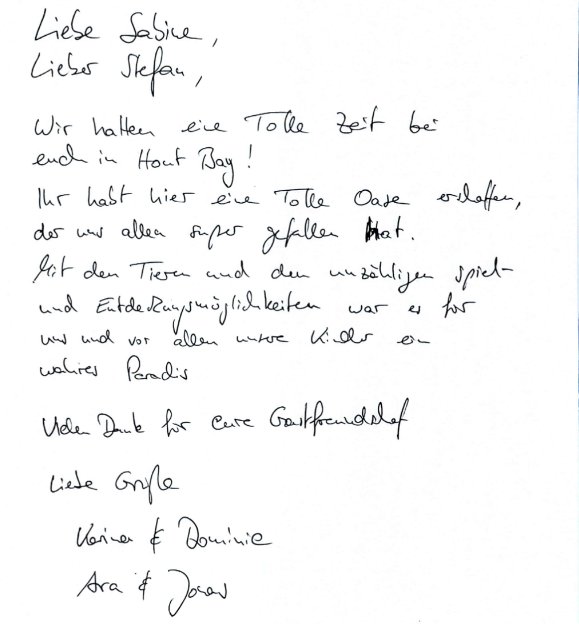 Liebe Sabine,
Lieber Stefan,
Wir hatten eine Tolle Zeit bei
euch in Hout Bay!
Ihr habt hier eine Tolle Oase erschaffen,
der uns allen super gefallen hat.
Mit den Tieren und den unzähligen spiel-
und Entdeckungsmöglichkeiten war es für
uns und vor allen unsere Kinder ein
wahres Paradis
Vielen Dank für eure Gastfreundschaf
Liebe Grüße
& Dominic
Ara & Jonas